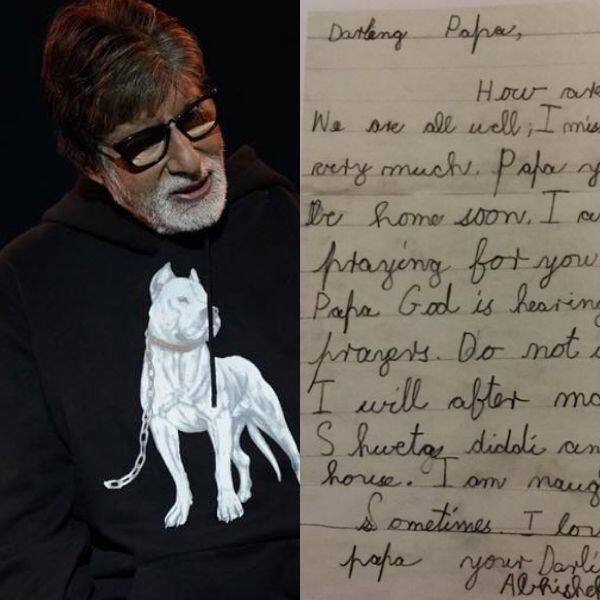 Darling Papa,
How are
We are all well; I miss
very much. Papa y
be home soon. I a
praying for you
Papa God is hearing
prayers. Do not
I will after mo
Shweta diddi an
house. I am naug
Sometimes. I lov
papa your Darli
Abhishe